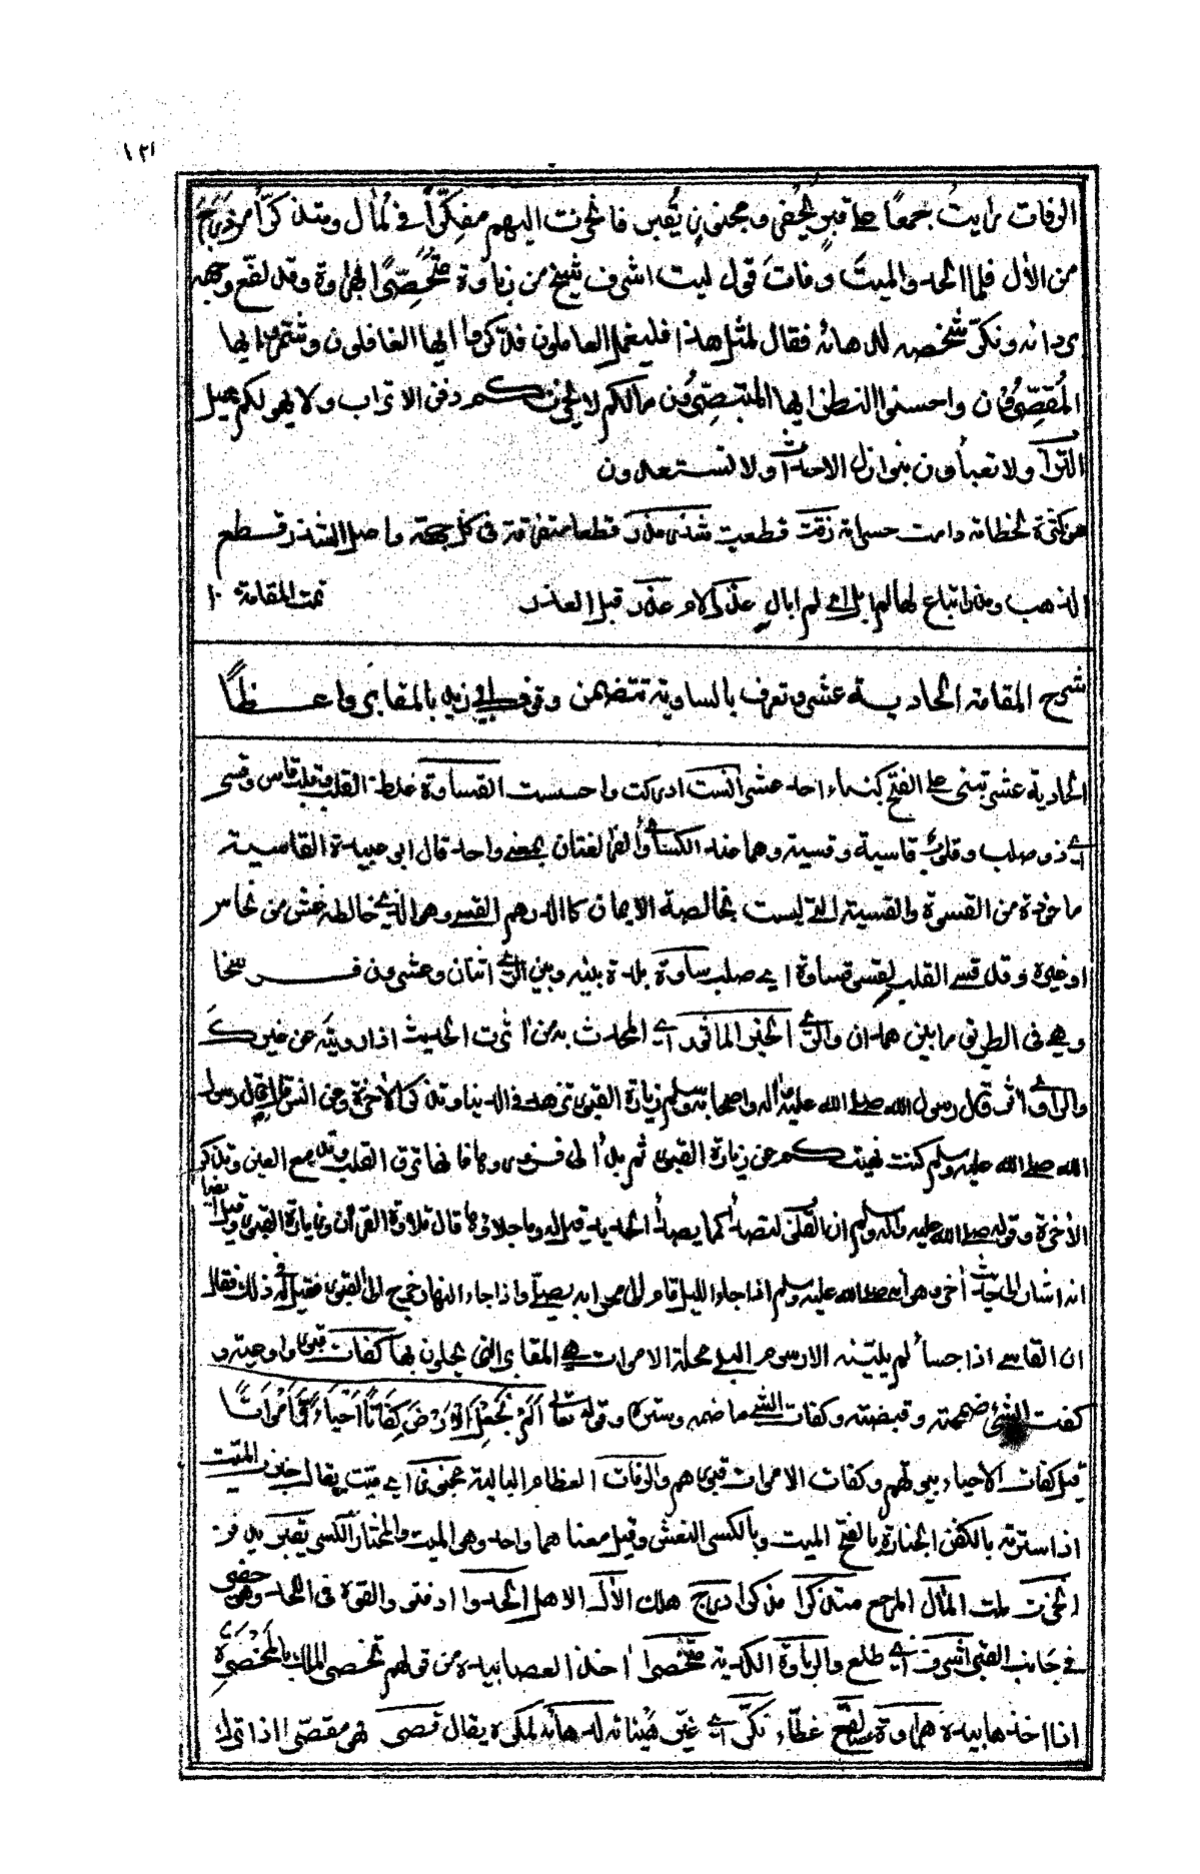 ١٢١
الرفات رأيت جمعا على قبر يحفر ومجنوز يقبر فانحزت اليهم مفكرا في المآل ومتذكرا من درج
من الآل فلما الحد والميت وفات قول ليت اشرف شيخ من رباوة متخصرا بهراوة وقد لفع وجهه
بردائه ونكر شخصه لدهائه فقال لمثل هذا فليعمل العاملون فادكروا ايها الغافلون وشمروا ايها
المقصرون واحسنوا النظر ايها المتبصرون مالكم لا يحزنكم دفن الاتراب ولا يهولكم هيل
التراب ولا تعباون بنوازل الاحداث ولا تستعدون
قطعت شذر مذر قطعا متفرقة في كل جهة واصل الشذر قطع
الذهب لم ابال عذر قبل العذر تمت المقامة ١٠
شرح المقامة الحادية عشر وتعرف بالساوية تتضمن وقوف ابي زيد بالمقابر واعظا
الحادية عشر تبنى على الفتح كبناء احد عشر انست ادركت واحسست القساوة غلظ القلب وقلب قاس وقسي
اي ذو صلب وقلوب قاسية وقسية وهما عند الكسائي والفرا لغتان بمعنى واحد قال ابو عبيدة القاسية
ماخوذة من القسوة والقسية التي ليست بخالصة الايمان كالدرهم القسي وهو الذي خالطه غش من نحاس
او غيره وقد قسى القلب يقسى قساوة اي صلب ساوة بلدة بينها وبين الري اثنان وعشرون فرسخا
وهي في الطريق ما بين همدان والري الخبر الماثور اي المحدث به من اثرت الحديث اذا رويته عن غيرك
والراوي اثر قال رسول الله صلى الله عليه واله واصحابه وسلم زيارة القبور تزهد في الدنيا وتذكر الاخرة وعن انس قال قال رسول
الله صلى الله عليه وسلم كنت نهيتكم عن زيارة القبور ثم بدا لي فزوروها فانها ترق القلب وتدمع العين وتذكر
الاخرة وقوله صلى الله عليه واله وسلم ان القلوب لتصدأ كما يصدأ الحديد قيل له وما جلاؤها قال تلاوة القرآن وزيارة القبور وقيل ايضا
انه اشار الى حديث اخر وهو انه صلى الله عليه وسلم اذا جاء الليل قام الى محرابه يصلي واذا جاء النهار خرج الى القبور فقيل له في ذلك فقال
ان القلب اذا جسا لم يلينه الا رسوم البلى محلة الاموات هي المقابر التي يحلون بها كفات قبور واوعية و
كفت الشئ ضممته وقبضته وكفات الشئ ما ضمه وستره وقوله تعالى ألم نجعل الأرض كفاتا أحياء وأمواتا
قيل كفات الاحياء بيوتهم وكفات الاموات قبورهم والرفات العظام البالية مجنوز اي ميت يقال جنز الميت
اذا سترته بالكفن الجنازة بالفتح الميت وبالكسر النعش وقيل معناهما واحد وهو الميت والمختار الكسر يقبر يدفن
انحزت ملت المآل المرجع متذكرا مذكرا درج هلك الآل الاهل الحدوا ادفنوا والقوة في اللحد وهو حفر
في جانب القبر اشرف اي طلع والرباوة الكدية متخصرا اخذ العصا بيده من قولهم تخصر الملك بالمخصرة
اذا اخذها بيده هراوة عصا لفع غطى نكر اي غير هيئاته لدهائه لمكره يقال قصر فهو مقصر اذا ترك